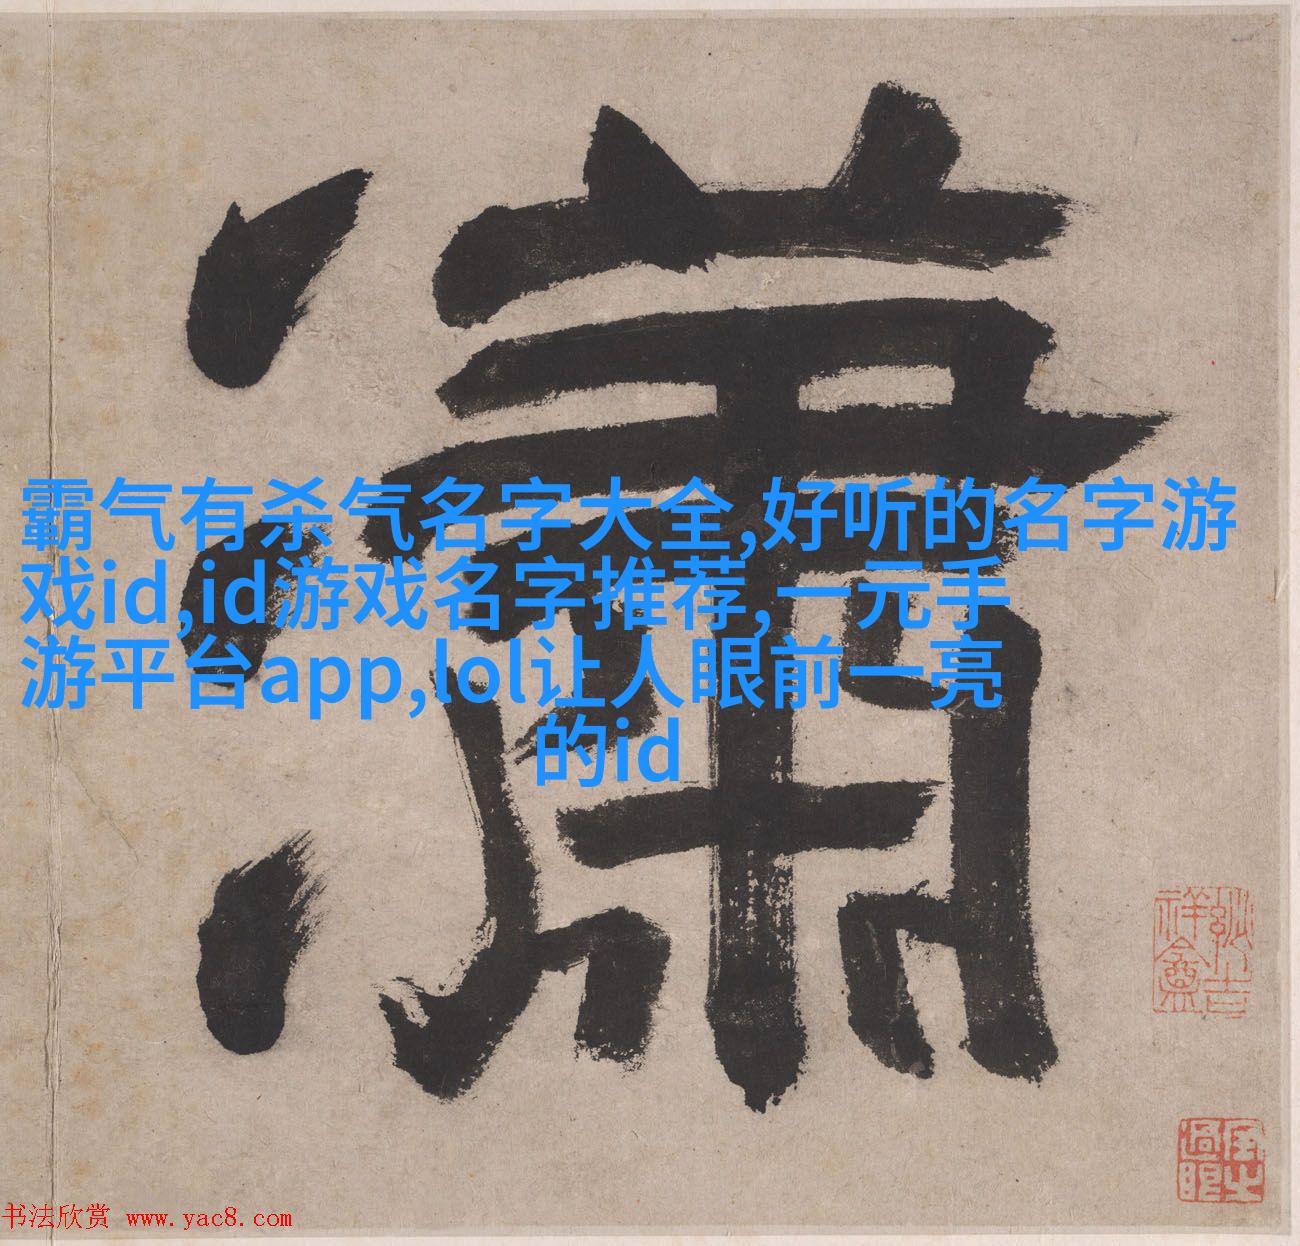 瀟
霸气有杀气名字大全,好听的名字游
戏id,id游戏名字推荐,一元手
游平台app,lol让人眼前一亮
的id
书法欣赏 www.yac8.com